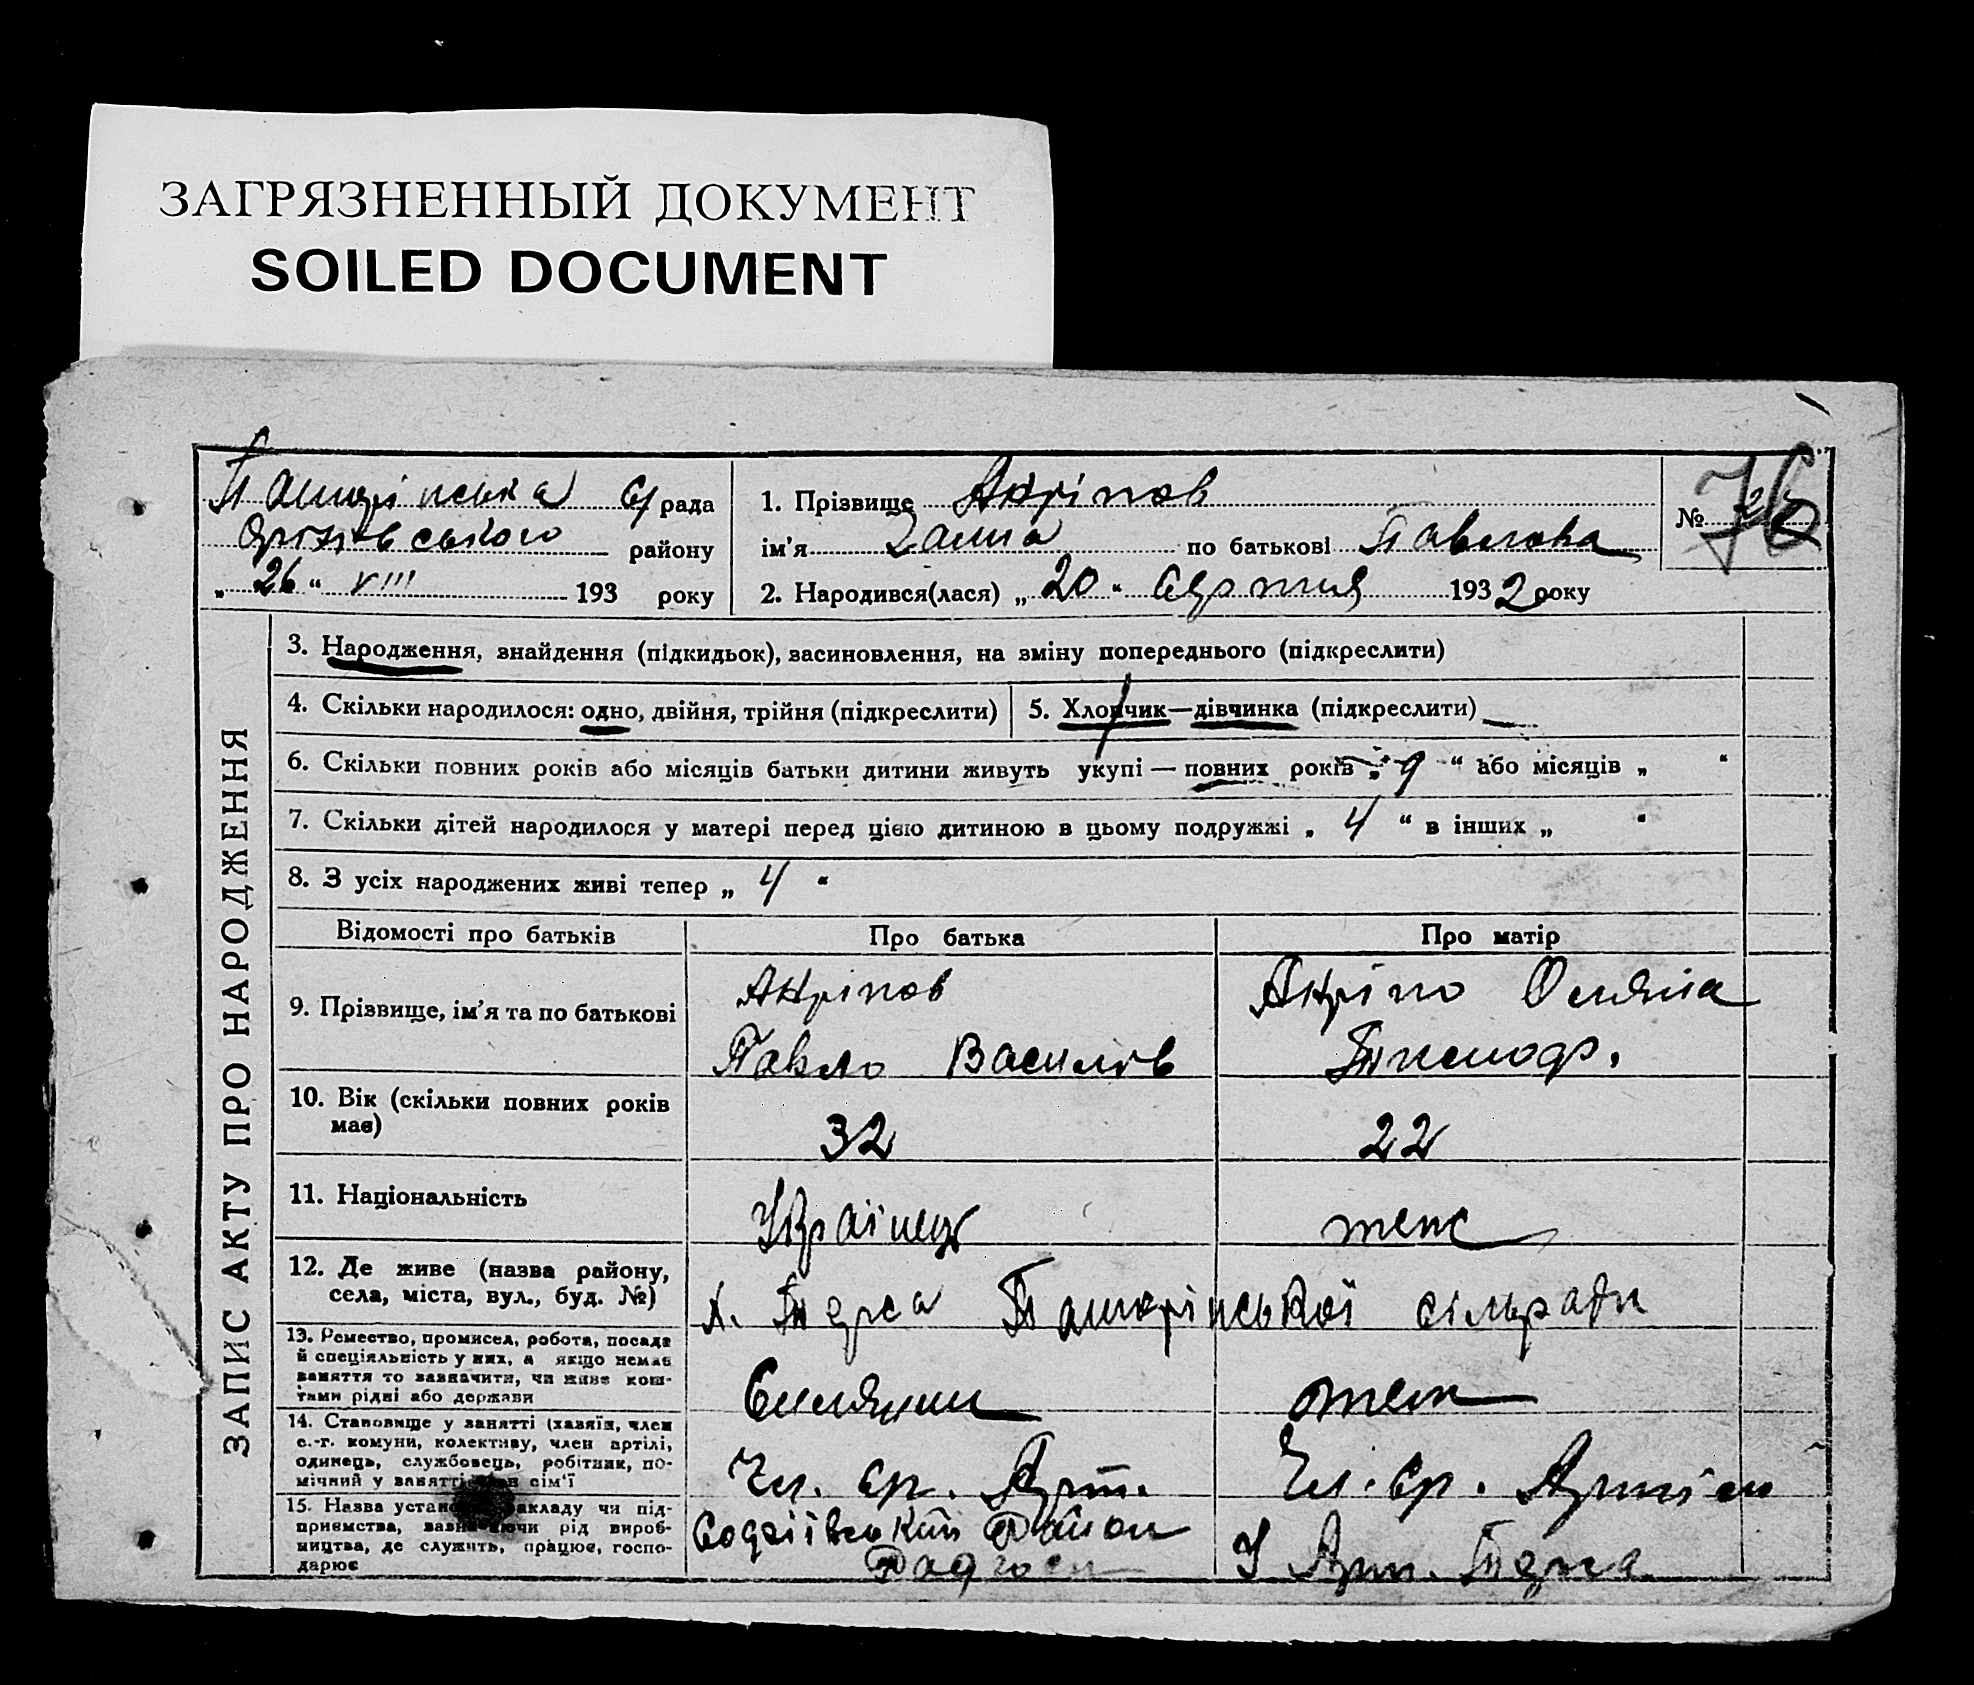 ЗАГРЯЗНЕННЫЙ ДОКУМЕНТ
SOILED DOCUMENT
рада
району
„ 26 “ VIII 193 року
1. Прізвище
ім'я по батькові Павлова
№ 76
2. Народився(лася) „ 20 “ серпня 1932 року
ЗАПИС АКТУ ПРО НАРОДЖЕННЯ
3. Народження, знайдення (підкидьок), засиновлення, на зміну попереднього (підкреслити)
4. Скільки народилося: одно, двійня, трійня (підкреслити)
5. Хлопчик—дівчинка (підкреслити)
6. Скільки повних років або місяців батьки дитини живуть укупі — повних років „ 9 “ або місяців „ “
7. Скільки дітей народилося у матері перед цією дитиною в цьому подружжі „ 4 “ в інших „ “
8. З усіх народжених живі тепер „ 4 “
Відомості про батьків Про батька Про матір
9. Прізвище, ім'я та по батькові
Павло Василів
10. Вік (скільки повних років
має)
32 22
11. Національність
Українець теж
12. Де живе (назва району,
села, міста, вул., буд. №)
х. сільради
13. Ремество, промисел, робота, посада
й спеціяльність у них, а якщо немає
заняття то зазначити, чи живе кош-
тами рідні або держави
теж
14. Становище у занятті (хазяїн, член
с.-г. комуни, колективу, член артілі,
одинець, службовець, робітник, по-
мічний у занятті член сім'ї
Чл. ср. Арт. Чл. ср. Артілі
15. Назва установи, закладу чи під-
приємства, зазначаючи рід вироб-
ництва, де служить, працює, госпо-
дарює
Район
Радгосп
У Арт.